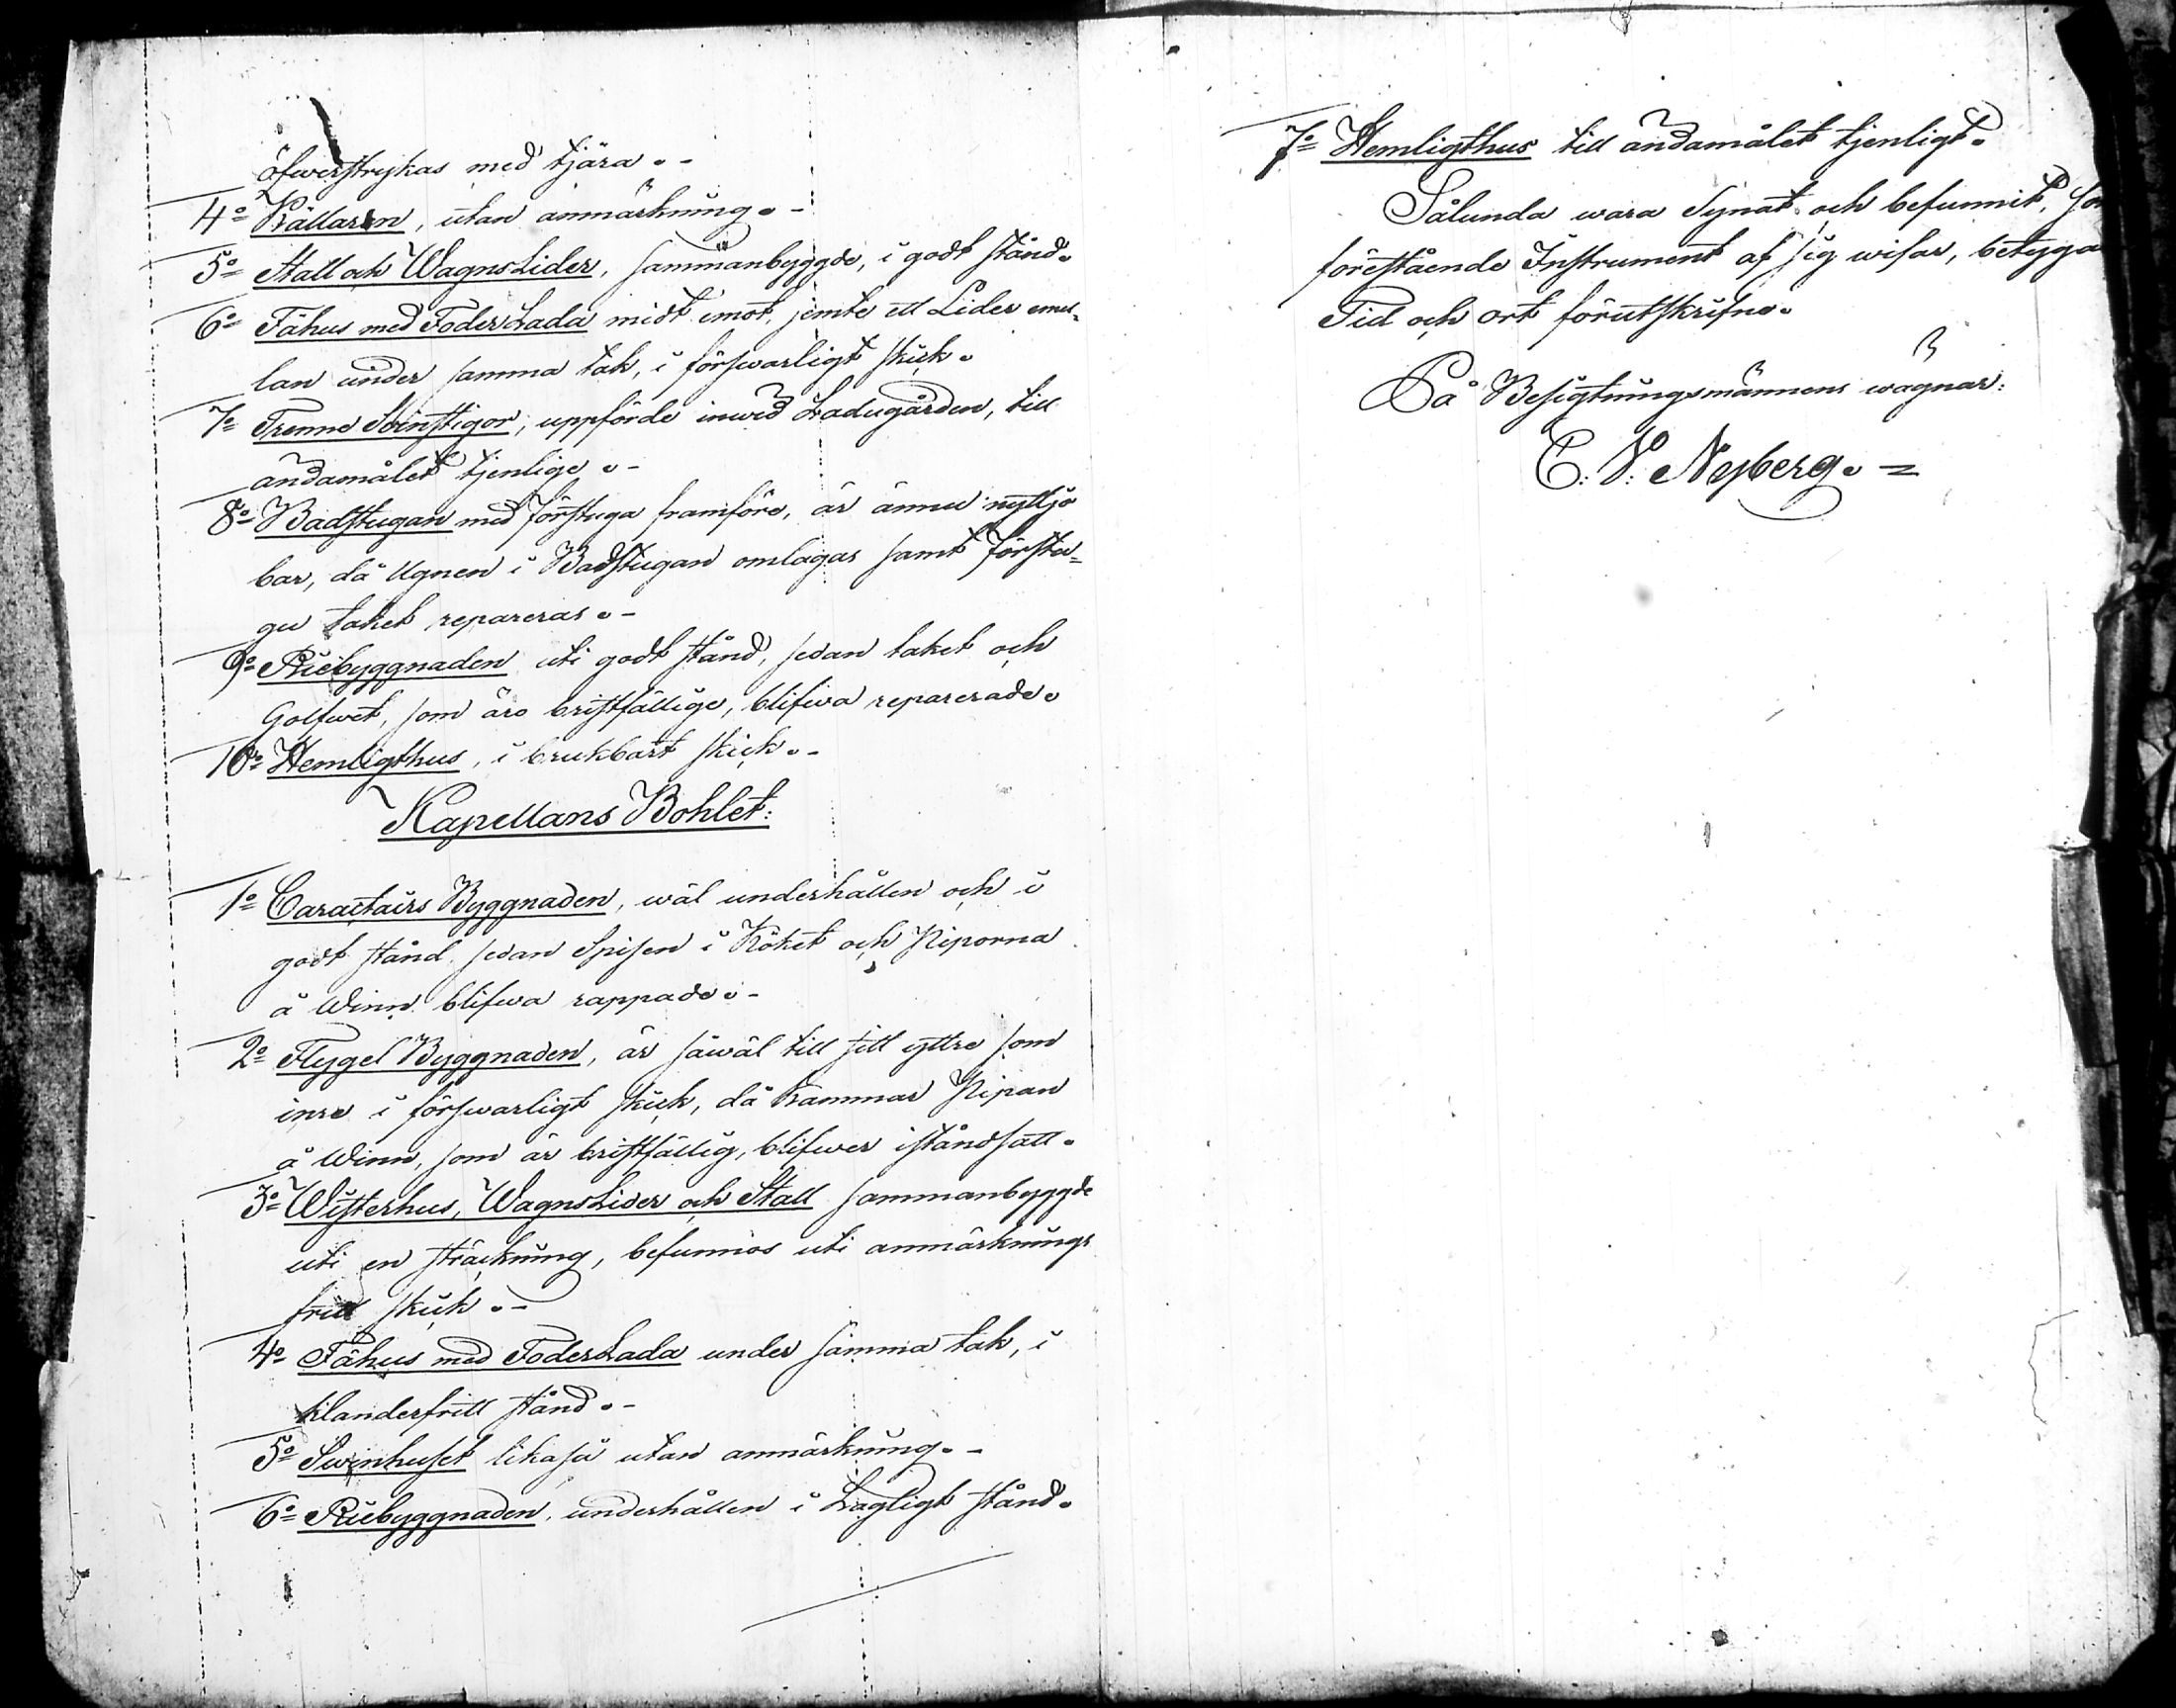 öfwerstrykas med tjära. -
4o Källaren, utan anmärkning. -
5o Stall och WagnsLider, sammanbyggde, i godt stånd.
6o Fähus med FoderLada midt emot, jemte ett Lider emel-
lan under samma tak, i förswarligt skick.
7o Trenne Svinstigor, uppförde inwid Ladugården, till
ändamålet tjenlige. -
8o Badstugan med Förstuga framföre, är ännu nyttjo
bar, då Ugnen i Badstugan omlagas samt Förstu-
gu taket repareras. -
9o Riebyggnaden uti godt stånd, sedan taket och
Golfwet, som äro bristfällige, blifwa reparerade.
10o Hemligthus, i brukbart skick. -
Kapellans Bohlet:
1o Caractairs Byggnaden, wäl underhållen och i
godt stånd, sedan Spisen i Köket och Piporna
å Winn blifwa rappade. -
2o Flygel Byggnaden, är såwäl till sitt yttre som
inre i förswarligt skick, då Kammar Pipan
å Winn, som är bristfällig, blifwer iståndsatt.
3o Wisterhus, WagnsLider och Stall sammanbyggde
uti en sträckning, befunnos uti anmärknings
fritt skick. -
4o Fähus med FoderLada under samma tak, i
klanderfritt stånd. -
5o Swinhuset likaså utan anmärkning. -
6o Riebyggnaden, underhållen i Lagligt stånd.
7o Hemligthus till ändamålet tjenligt.
Sålunda wara Synat och befunnit, som
förestående Instrument af sig wisar, betyga
Tid och ort förutskrifne.
På Besigtningsmännens wägnar:
C: V: Nyberg. =